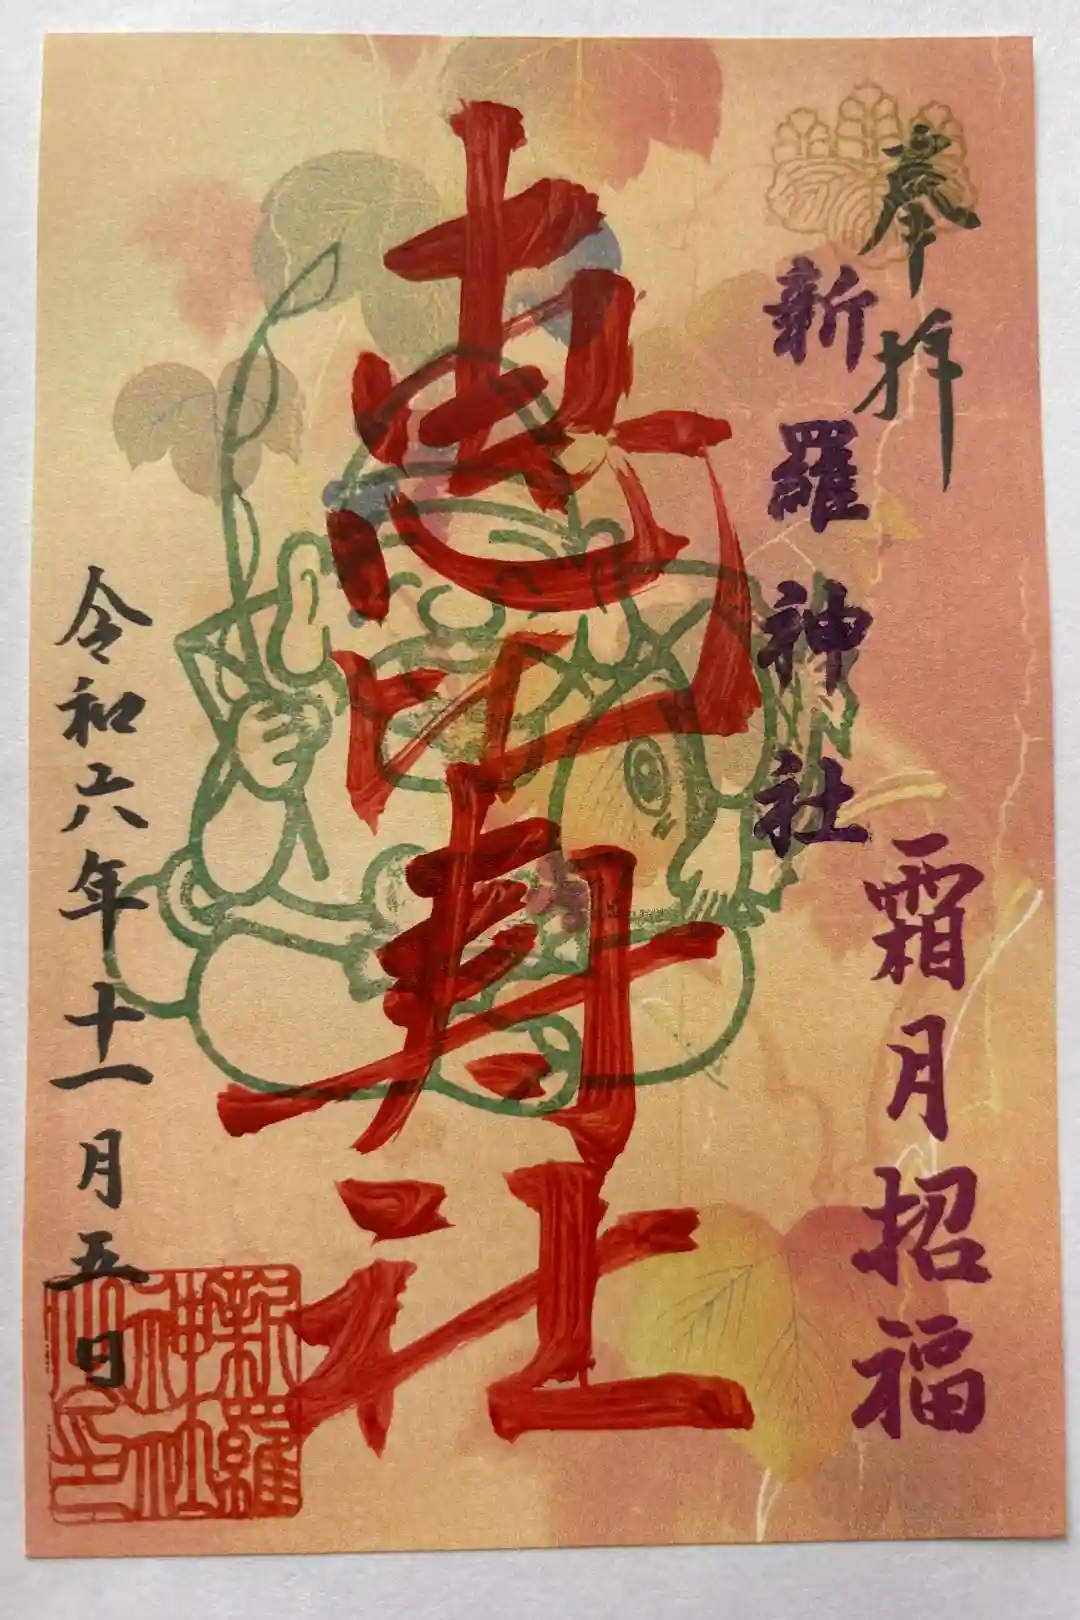 奉拝
新羅神社
霜月招福
恵比寿社
令和六年十一月五日
新羅
神社
之印